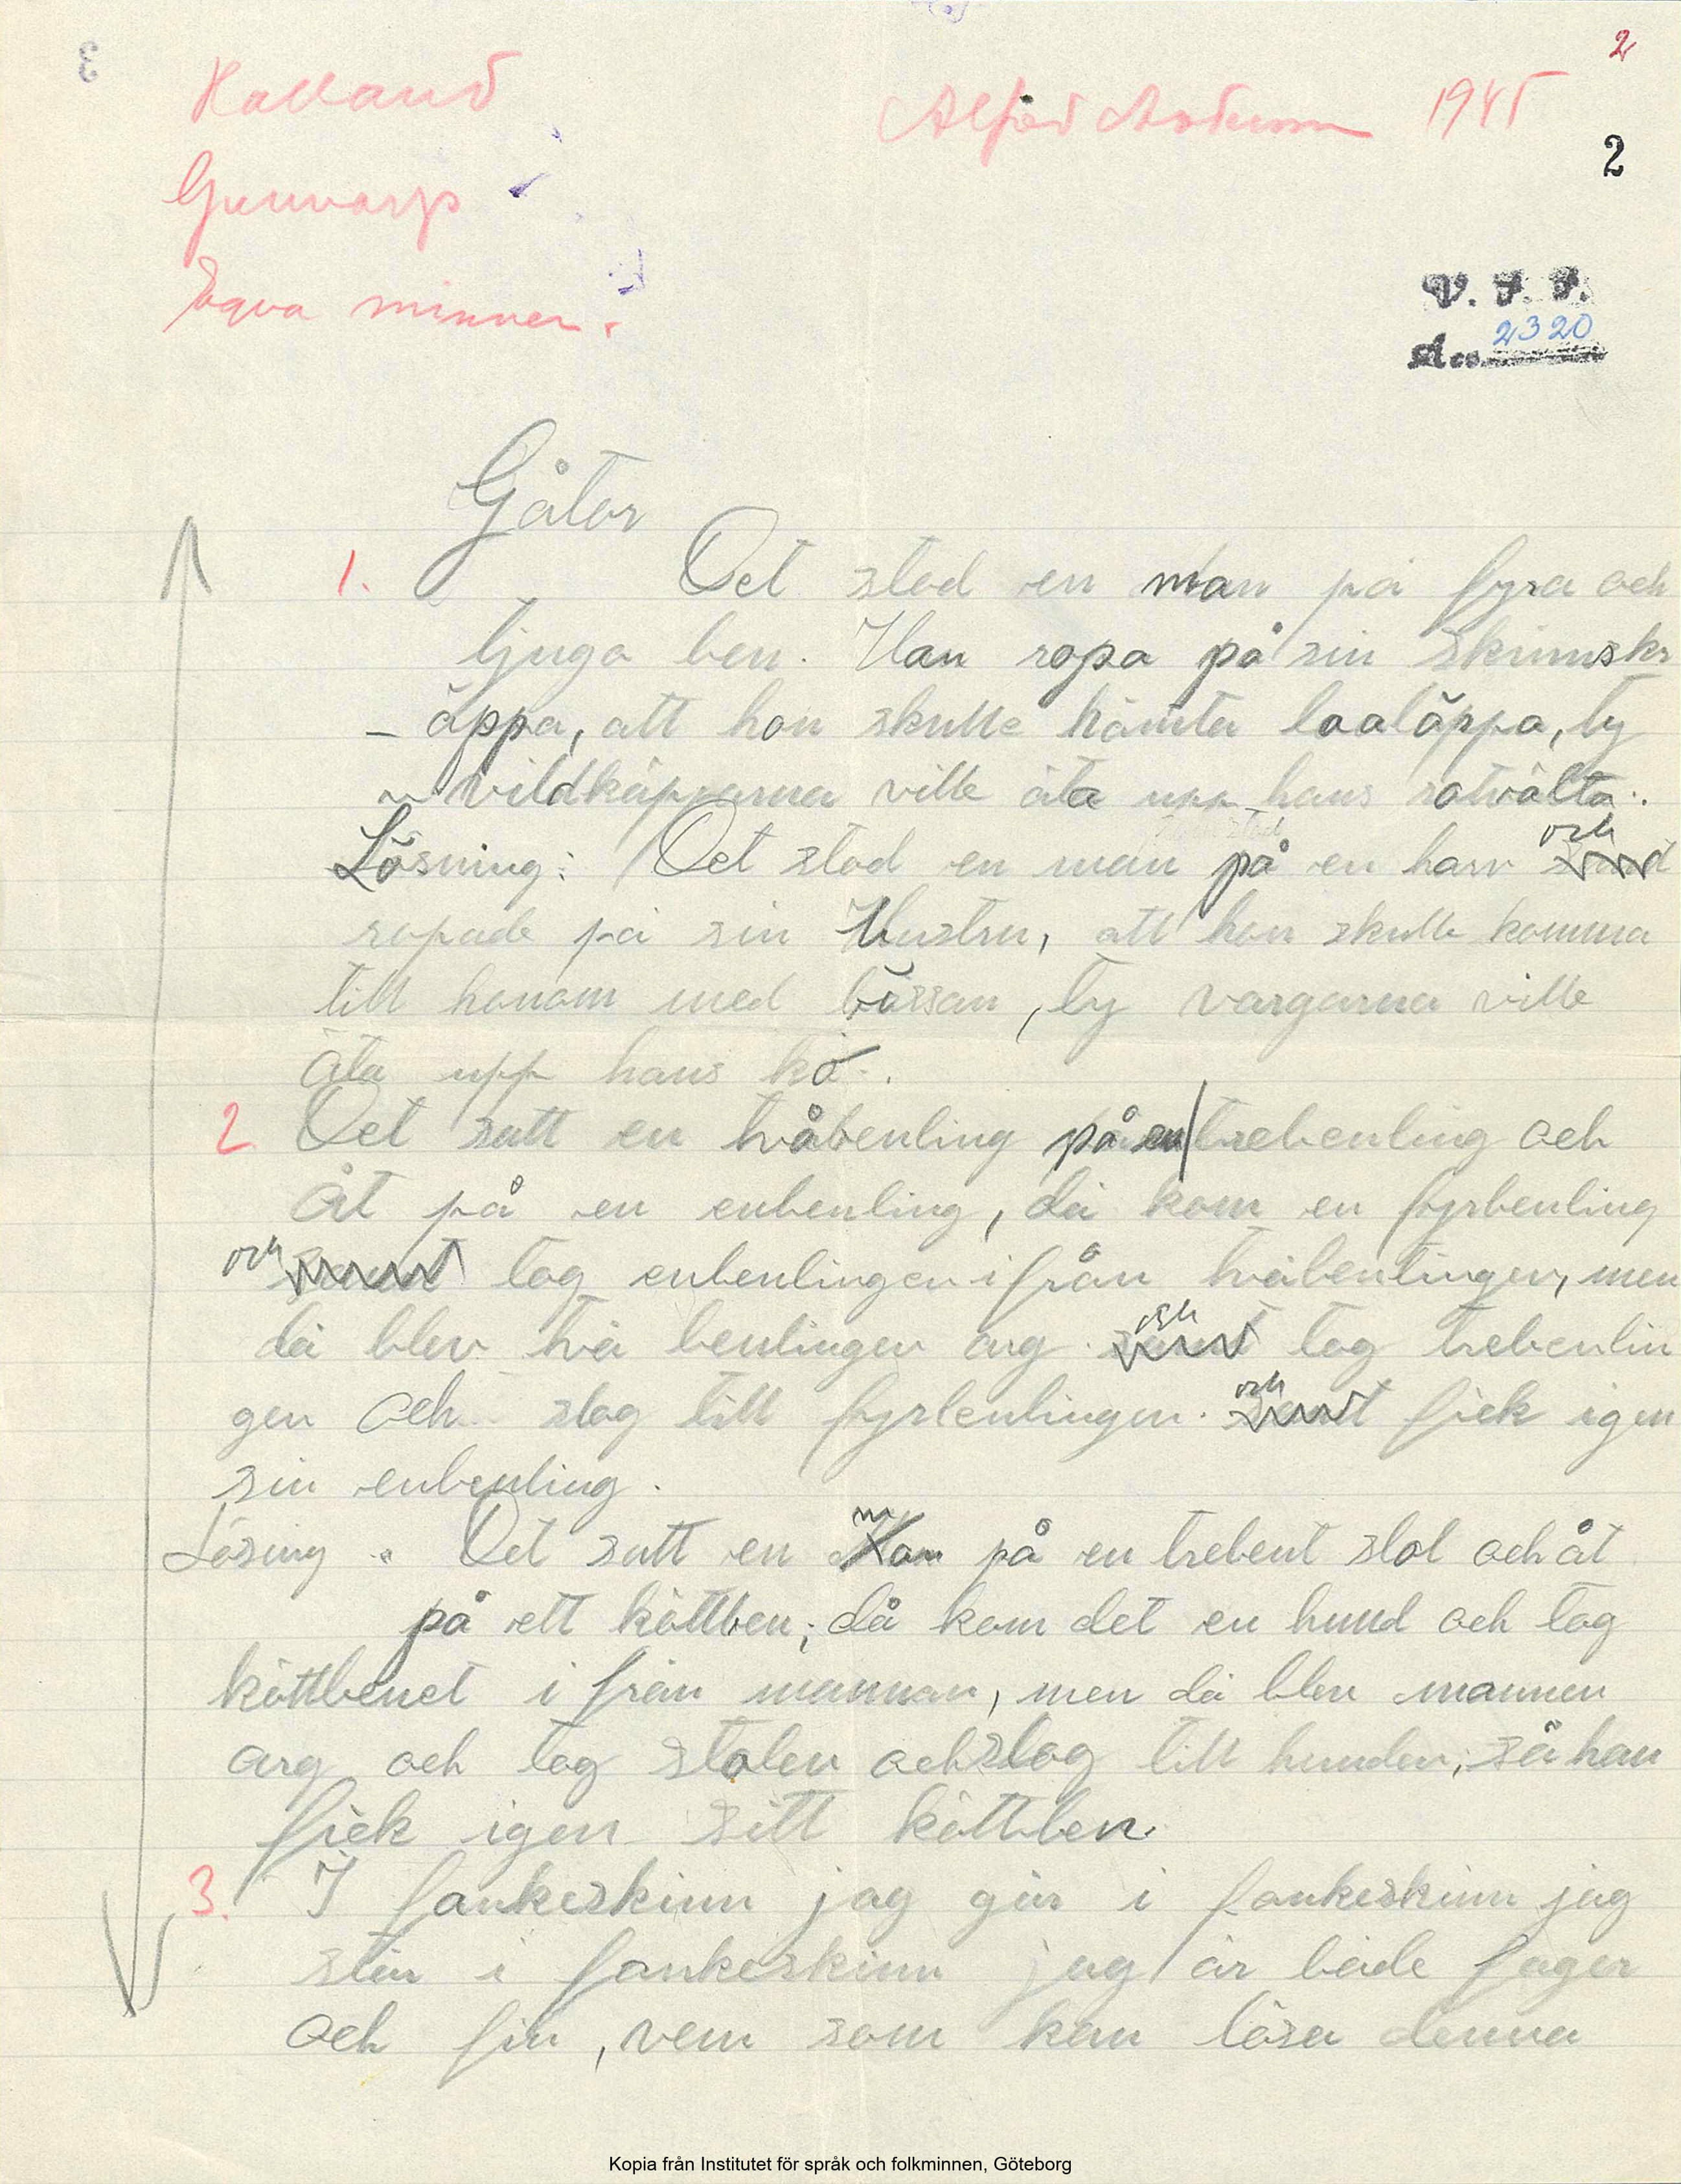 2
Halland
Alfred 1945
2
Gunnarp
Egna minnen.
V. F. F.
Acc. 2320
Gåtor
1. Det stod en man på fyra och
tjuga ben. Han ropa på sin skinnskr
- äppa, att hon skulle hämta laaläppa, ty
vildkäpparna ville äta upp hans rotvälta.
Lösning: Det stod en man på en harv och
ropade på sin Hustru, att hon skulle komma
till honom med bössan, ty vargarna ville
äta upp hans ko.
2 Det satt en tvåbenling på en trebenling och
åt på en enbenling, då kom en fyrbenling
och tog enbenlingen ifrån tvåbenlingen, men
då blev två benlingen arg och tog trebenlin
gen och slog till fyrbenlingen. och fick igen
sin enbenling.
Lösing. Det satt en man på en trebent stol och åt
på ett köttben; då kom det en hund och tog
köttbenet i från mannan, men då blev mannen
arg och tog stolen och slog till hunden, så han
fick igen sitt köttben.
3. I fankeskinn jag går i fankeskinn jag
står i fankeskinn jag är både fager
och fin, vem som kan lösa denna
Kopia från Institutet för språk och folkminnen, Göteborg